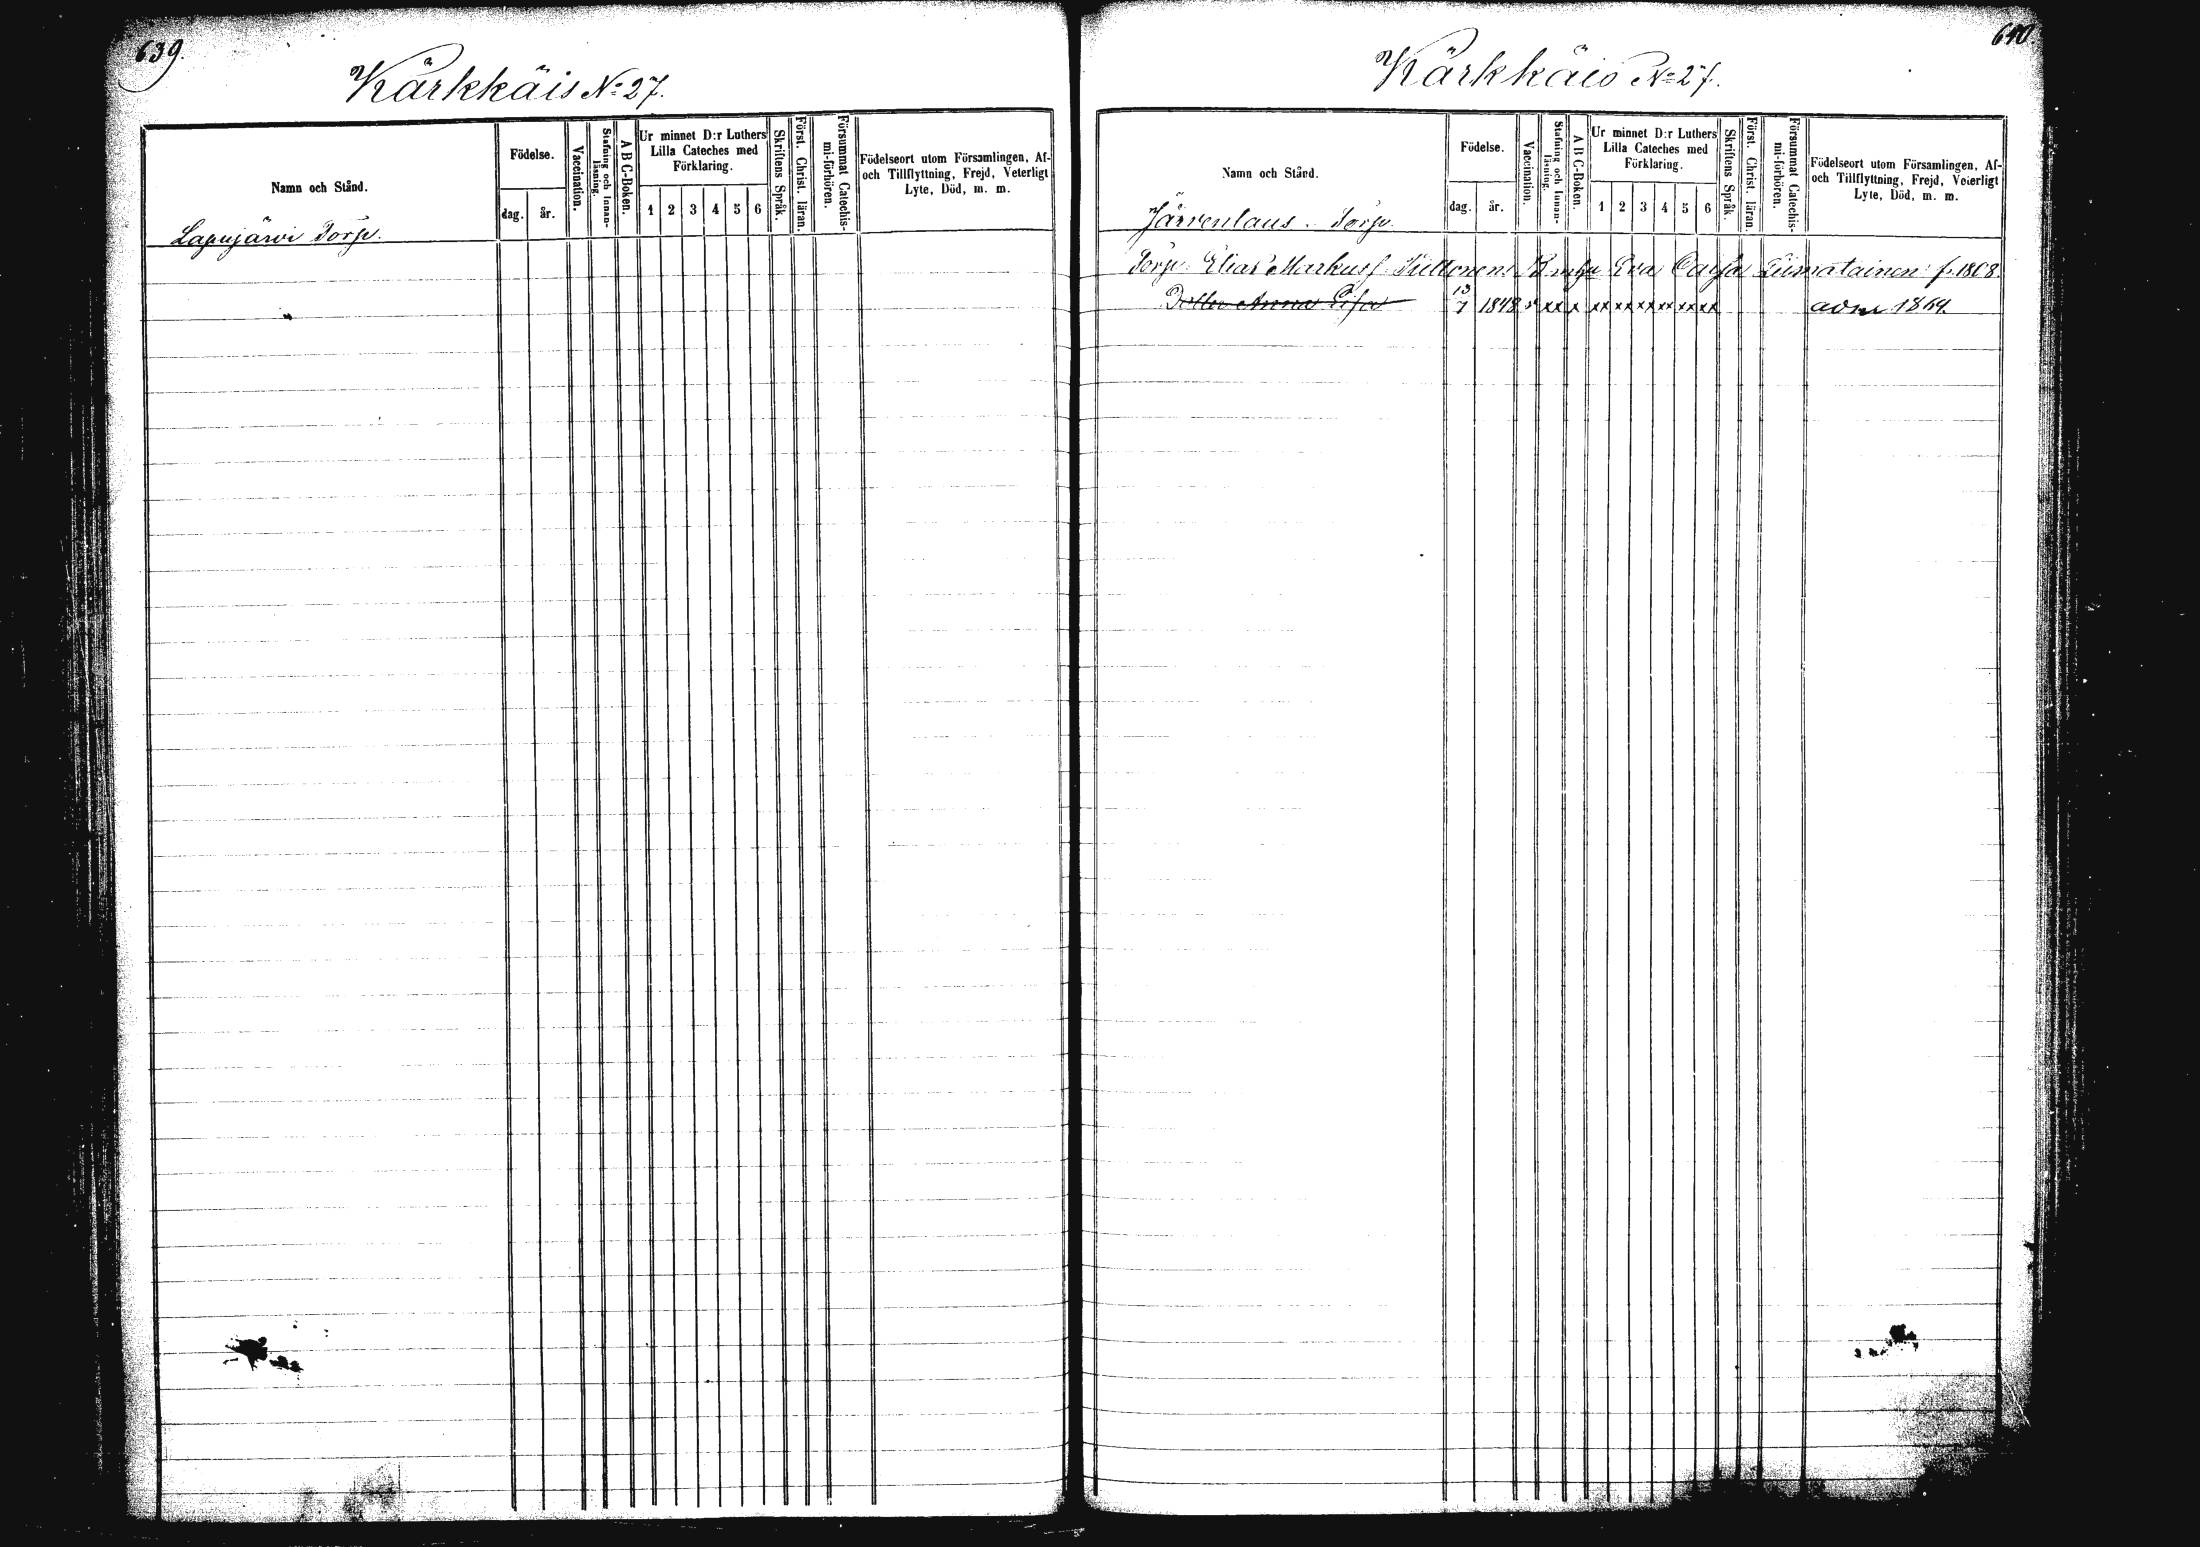 639.
Kärkkäis No 27.
Namn och Stånd.
Födelse.
dag.
år.
Vaccination.
Stafning och Innan-
läsning.
A B C-Boken.
Ur minnet D:r Luthers
Lilla Cateches med
Förklaring.
1 2 3 4 5 6
Skriftens Språk.
Först. Christ. läran.
Försummat Catechis-
mi-förhören.
Födelseort utom Församlingen, Af-
och Tillflyttning, Frejd, Veterligt
Lyte, Död, m. m.
Lapujärvi Torp.
640.
Kärkkäis No 27.
Namn och Stånd.
Födelse.
dag.
år.
Vaccination.
Stafning och Innan-
läsning.
A B C-Boken.
Ur minnet D:r Luthers
Lilla Cateches med
Förklaring.
1 2 3 4 5 6
Skriftens Språk.
Först. Christ. läran.
Försummat Catechis-
mi-förhören.
Födelseort utom Församlingen, Af-
och Tillflyttning, Frejd, Veterligt
Lyte, Död, m. m.
Järvenlaus Torp.
Torp. Elias Markuss. Eva Caisa Liimatainen f. 1808.
Dotter Anna Lisa 13/7 1848 v xx x xx xx xx xx xx xx adm 1864.